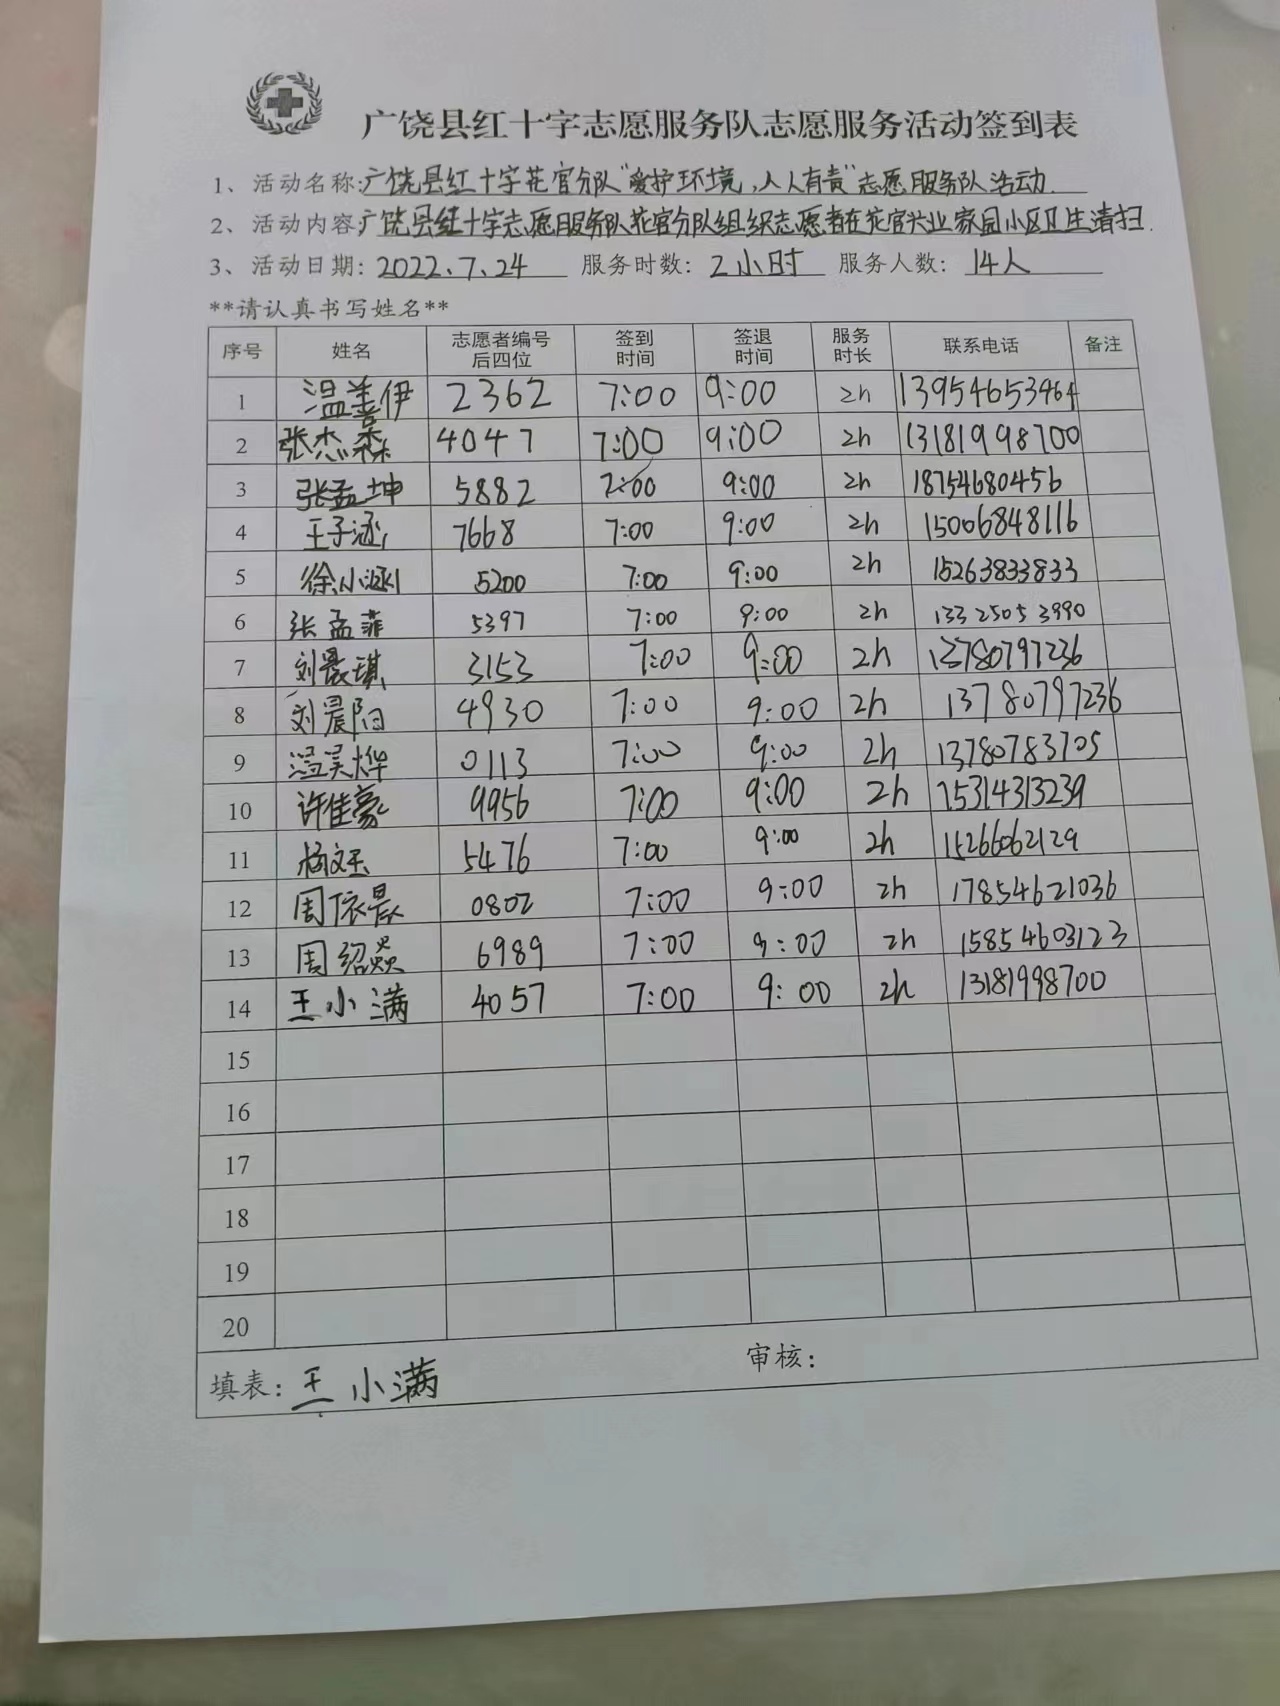 广饶县红十字志愿服务队志愿服务活动签到表
1、活动名称:广饶县红十字花官分队"爱护环境,人人有责"志愿服务队活动.
2、活动内容:广饶县红十字志愿服务队花官分队组织志愿者在花官兴业家园小区卫生清扫.
3、活动日期: 2022.7.24 服务时数: 2小时 服务人数: 14人
**请认真书写姓名**
序号 姓名 志愿者编号后四位 签到时间 签退时间 服务时长 联系电话 备注
1 温善伊 2362 7:00 9:00 2h 13954653464
2 张杰森 4047 7:00 9:00 2h 13181998700
3 张孟坤 5882 7:00 9:00 2h 18754680456
4 王子涵 7668 7:00 9:00 2h 15006848116
5 徐小涵 5200 7:00 9:00 2h 15263833833
6 张孟菲 5397 7:00 9:00 2h 13325053990
7 刘晨琪 3153 7:00 9:00 2h 13780797236
8 刘晨阳 4930 7:00 9:00 2h 13780797236
9 温昊烨 0113 7:00 9:00 2h 13780783705
10 许佳豪 9956 7:00 9:00 2h 15314313239
11 杨文玉 5476 7:00 9:00 2h 15266062129
12 周依晨 0802 7:00 9:00 2h 17854621036
13 周绍焱 6989 7:00 9:00 2h 15854603123
14 王小满 4057 7:00 9:00 2h 13181998700
15
16
17
18
19
20
填表: 王小满 审核: